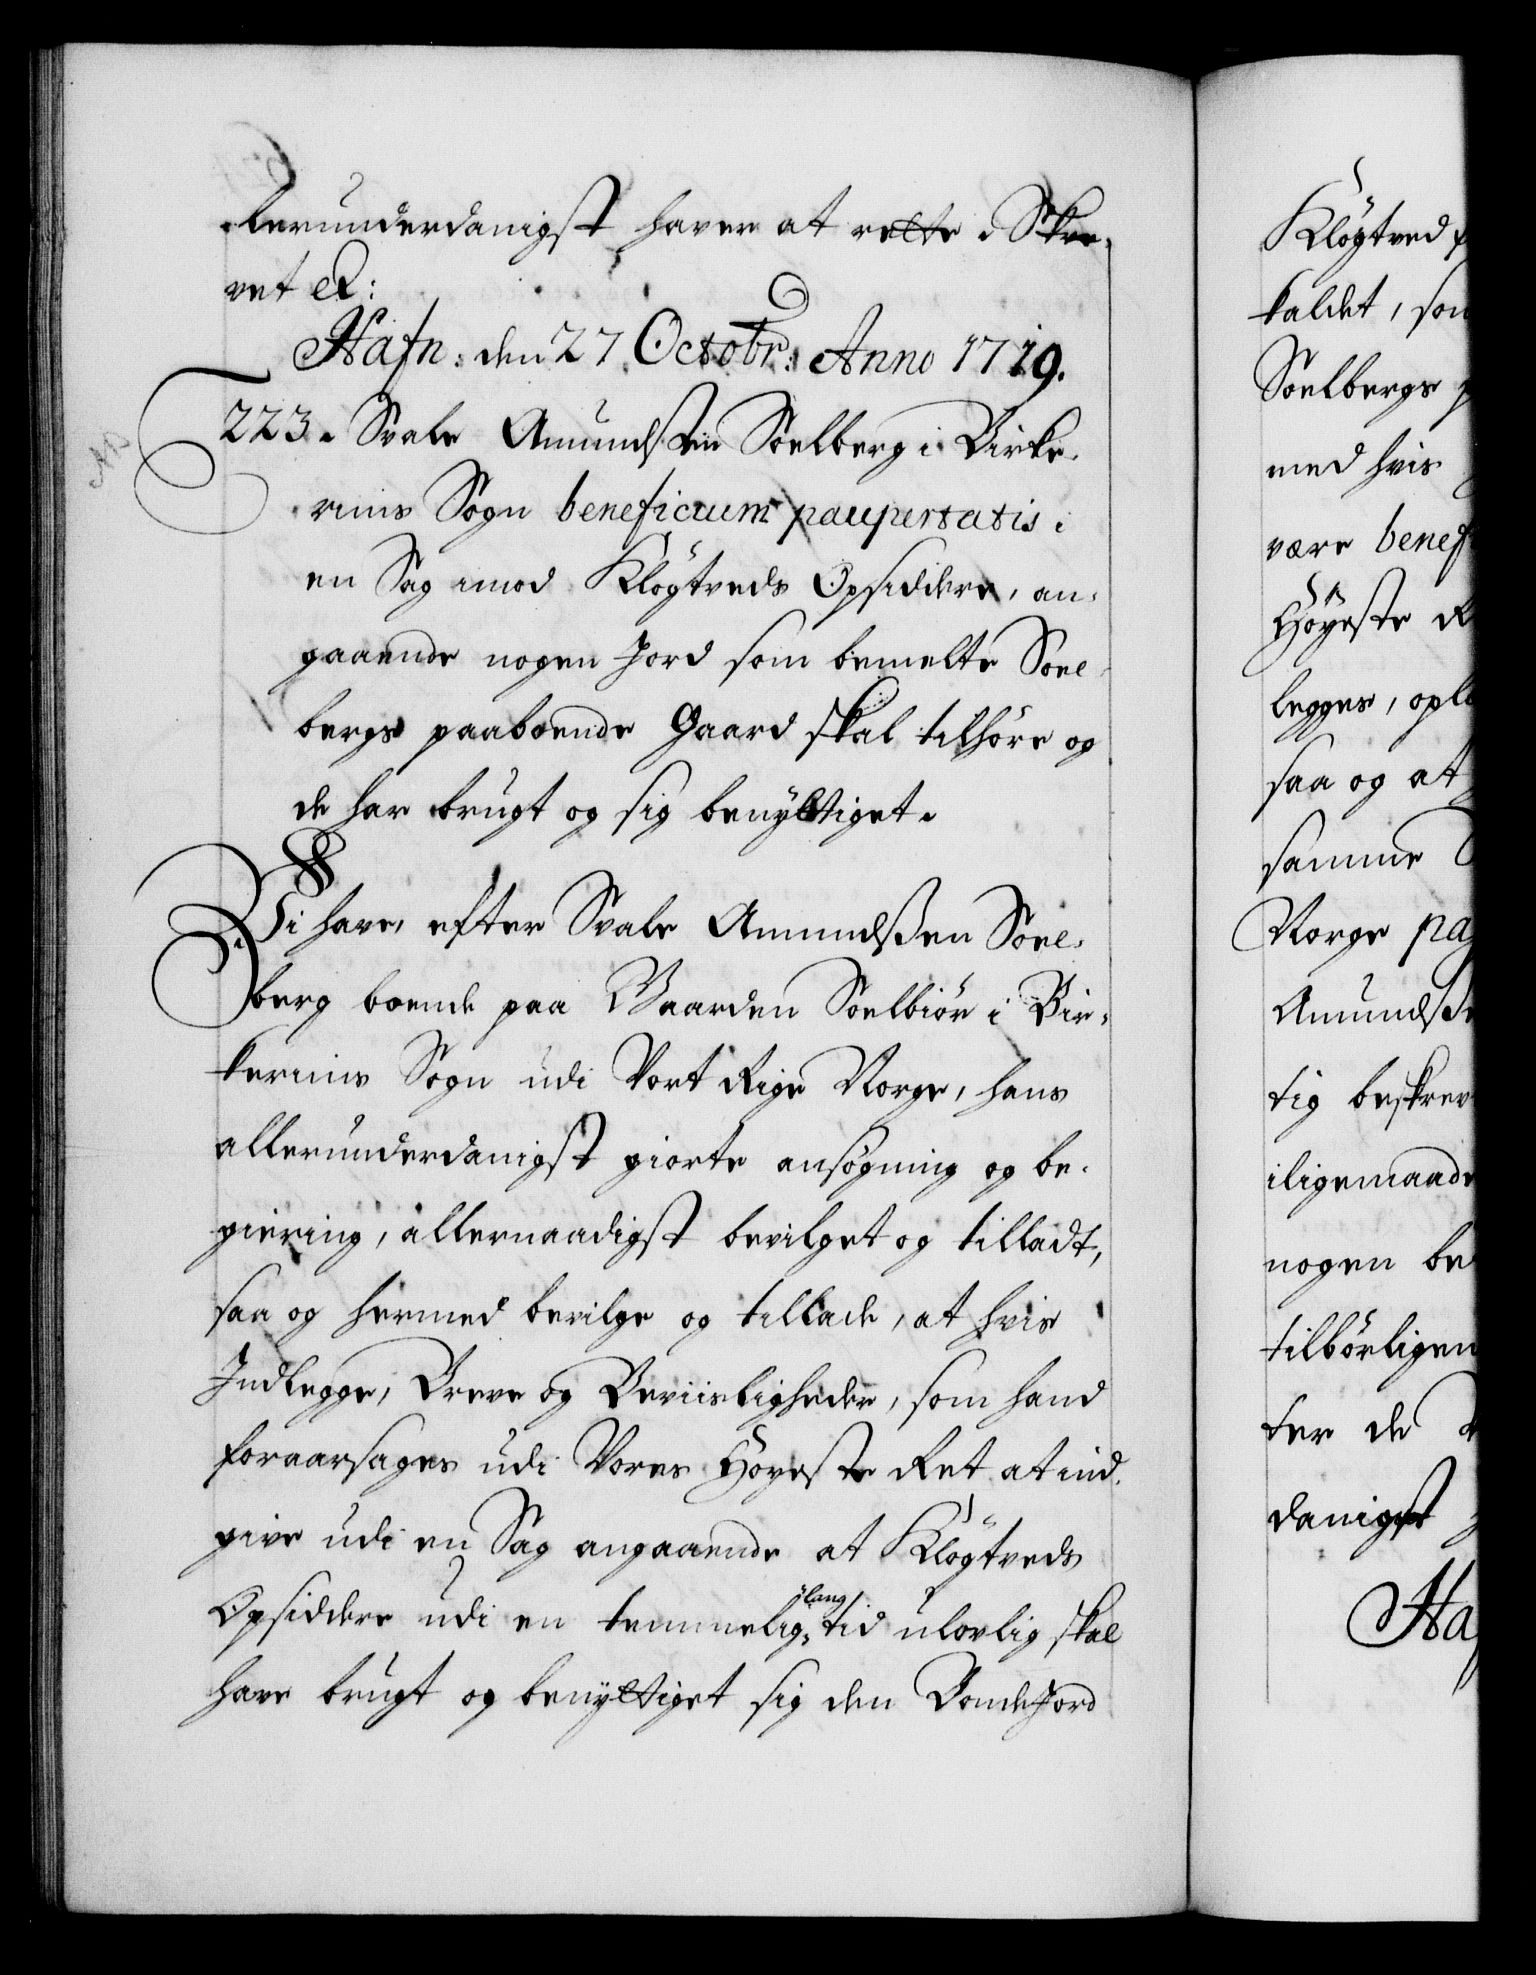 lerunderdanigst haver at rette. Skre-
vet &:
Hafn: den 27 Octobr: Anno 1719.
223. Svale Amundsøn Soelberg i Birke-
renis Sogn beneficium paupertatis i
en Sag imod Kløgtveds Opsiddere, an-
gaaende nogen Jord som bemelte Soel-
bergs paaboende Gaard skal tilhøre og
de har brugt og sig benyttiget.
Vi have, efter Svale Amundsßen Soel-
berg boende paa Gaarden Soelbiør i Bir-
kerenis Sogn udi Vort Rige Norge, hans
allerunderdanigst giorte ansøgning og be-
giering, allernaadigst bevilget og tilladt,
saa og hermed bevilge og tillade, at hvis
Indlegge, Breve og Beviisligheder, som hand
foraarsages udi Vores Høyeste Ret at ind-
give udi en Sag angaaende at Kløgtveds
Opsiddere udi en temmelig lang tid ulovlig skal
have brugt og benyttiget sig den BondeJord
Kløgtved
kaldet, som
Soelbergs
med hvis
være benef
Høyeste R
legges, opl
saa og at
samme
Norge pa
Amundsße
tig beskrev
iligemaade
nogen be
tilbørligen
ter de
danigst
Ha